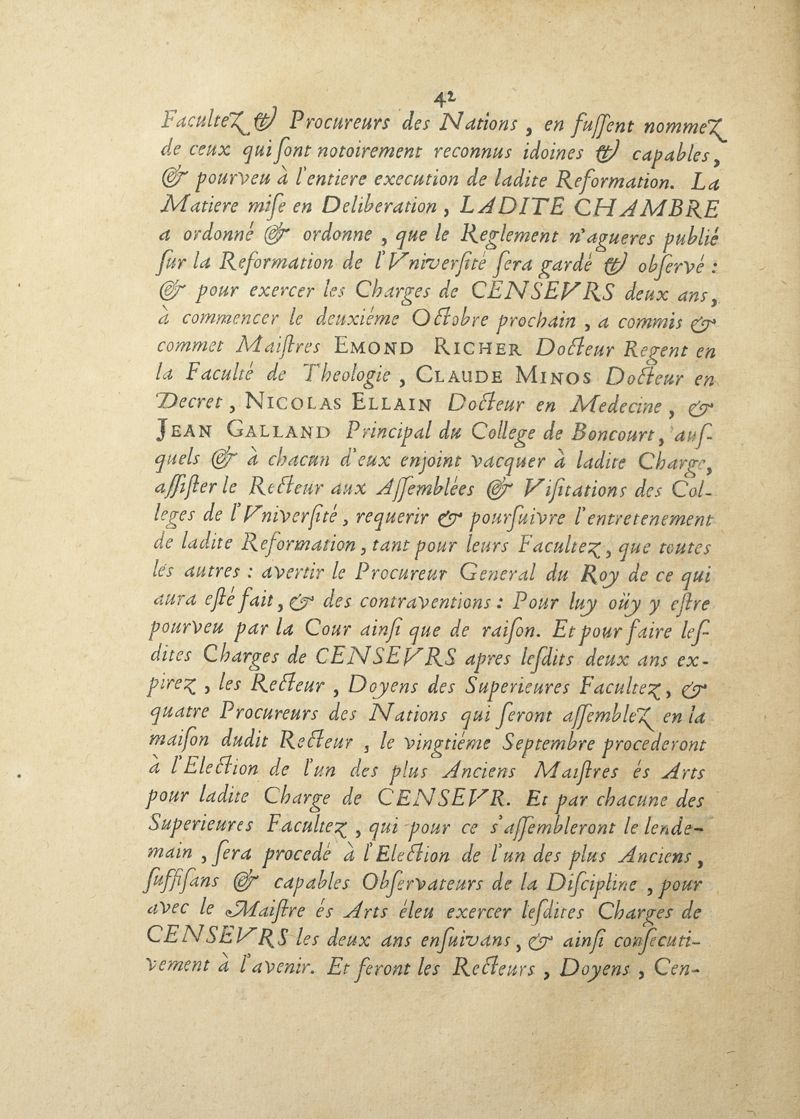 42
Facultez & Procureurs des Nations , en fuſſent nommez
de ceux qui ſont notoirement reconnus idoines & capables,
& pourveu à l'entiere execution de ladite Reformation. La
Matiere miſe en Deliberation , LADITE CHAMBRE
a ordonné & ordonne , que le Reglement n'agueres publié
ſur la Reformation de l'Vniverſité ſera gardé & obſervé :
& pour exercer les Charges de CENSEVRS deux ans,
à commencer le deuxiéme Octobre prochain , a commis &
commet Maiſtres EMOND RICHER Docteur Regent en
la Faculté de Theologie , CLAUDE MINOS Docteur en
Decret , NICOLAS ELLAIN Docteur en Medecine , &
JEAN GALLAND Principal du College de Boncourt, auſ-
quels & à chacun d'eux enjoint vacquer à ladite Charge,
aſſiſter le Recteur aux Aſſemblées & Viſitations des Col-
leges de l'Vniverſité , requerir & pourſuivre l'entretenement
de ladite Reformation , tant pour leurs Facultez , que toutes
les autres : avertir le Procureur General du Roy de ce qui
aura eſté fait , & des contraventions : Pour luy oüy y eſtre
pourveu par la Cour ainſi que de raiſon. Et pour faire leſ-
dites Charges de CENSEVRS apres leſdits deux ans ex-
pirez , les Recteur , Doyens des Superieures Facultez , &
quatre Procureurs des Nations qui ſeront aſſemblez en la
maiſon dudit Recteur , le vingtiéme Septembre procederont
à l'Election de l'un des plus Anciens Maiſtres és Arts
pour ladite Charge de CENSEVR. Et par chacune des
Superieures Facultez , qui pour ce s'aſſembleront le lende-
main , ſera procedé à l'Election de l'un des plus Anciens ,
ſuffiſans & capables Obſervateurs de la Diſcipline , pour
avec le Maiſtre és Arts éleu exercer leſdites Charges de
CENSEVRS les deux ans enſuivans , & ainſi conſecuti-
vement à l'avenir. Et ſeront les Recteurs , Doyens , Cen-